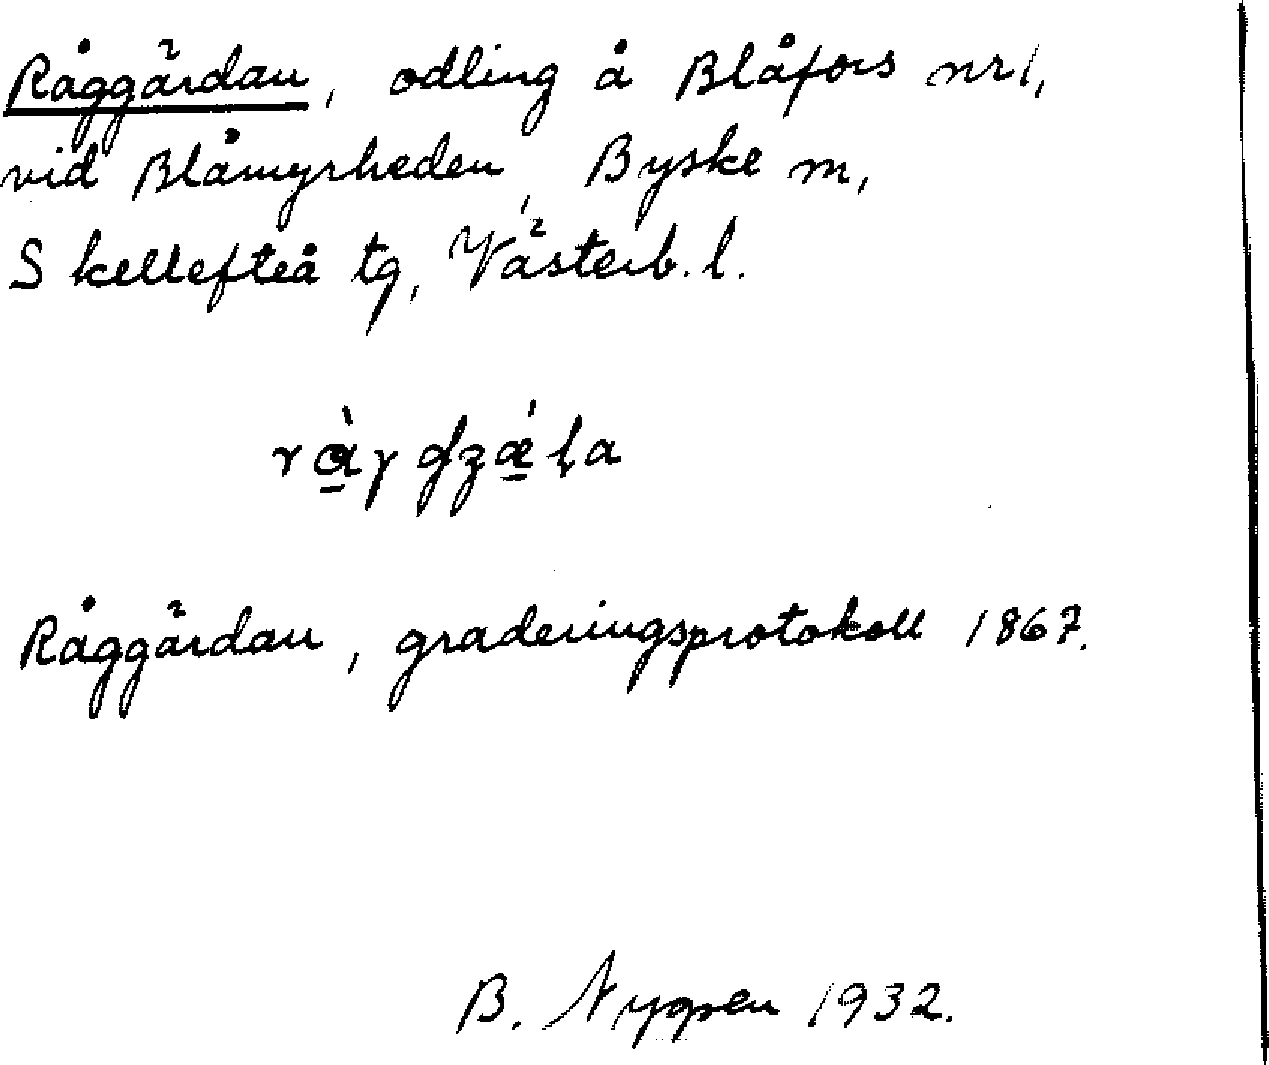 Råggärdan, odling å Blåfors nr 1,
vid Blåmyrheden, Byske m,
Skellefteå tg, Västerb. l.
Råggärdan, graderingsprotokoll 1867.
B. Nygren 1932.